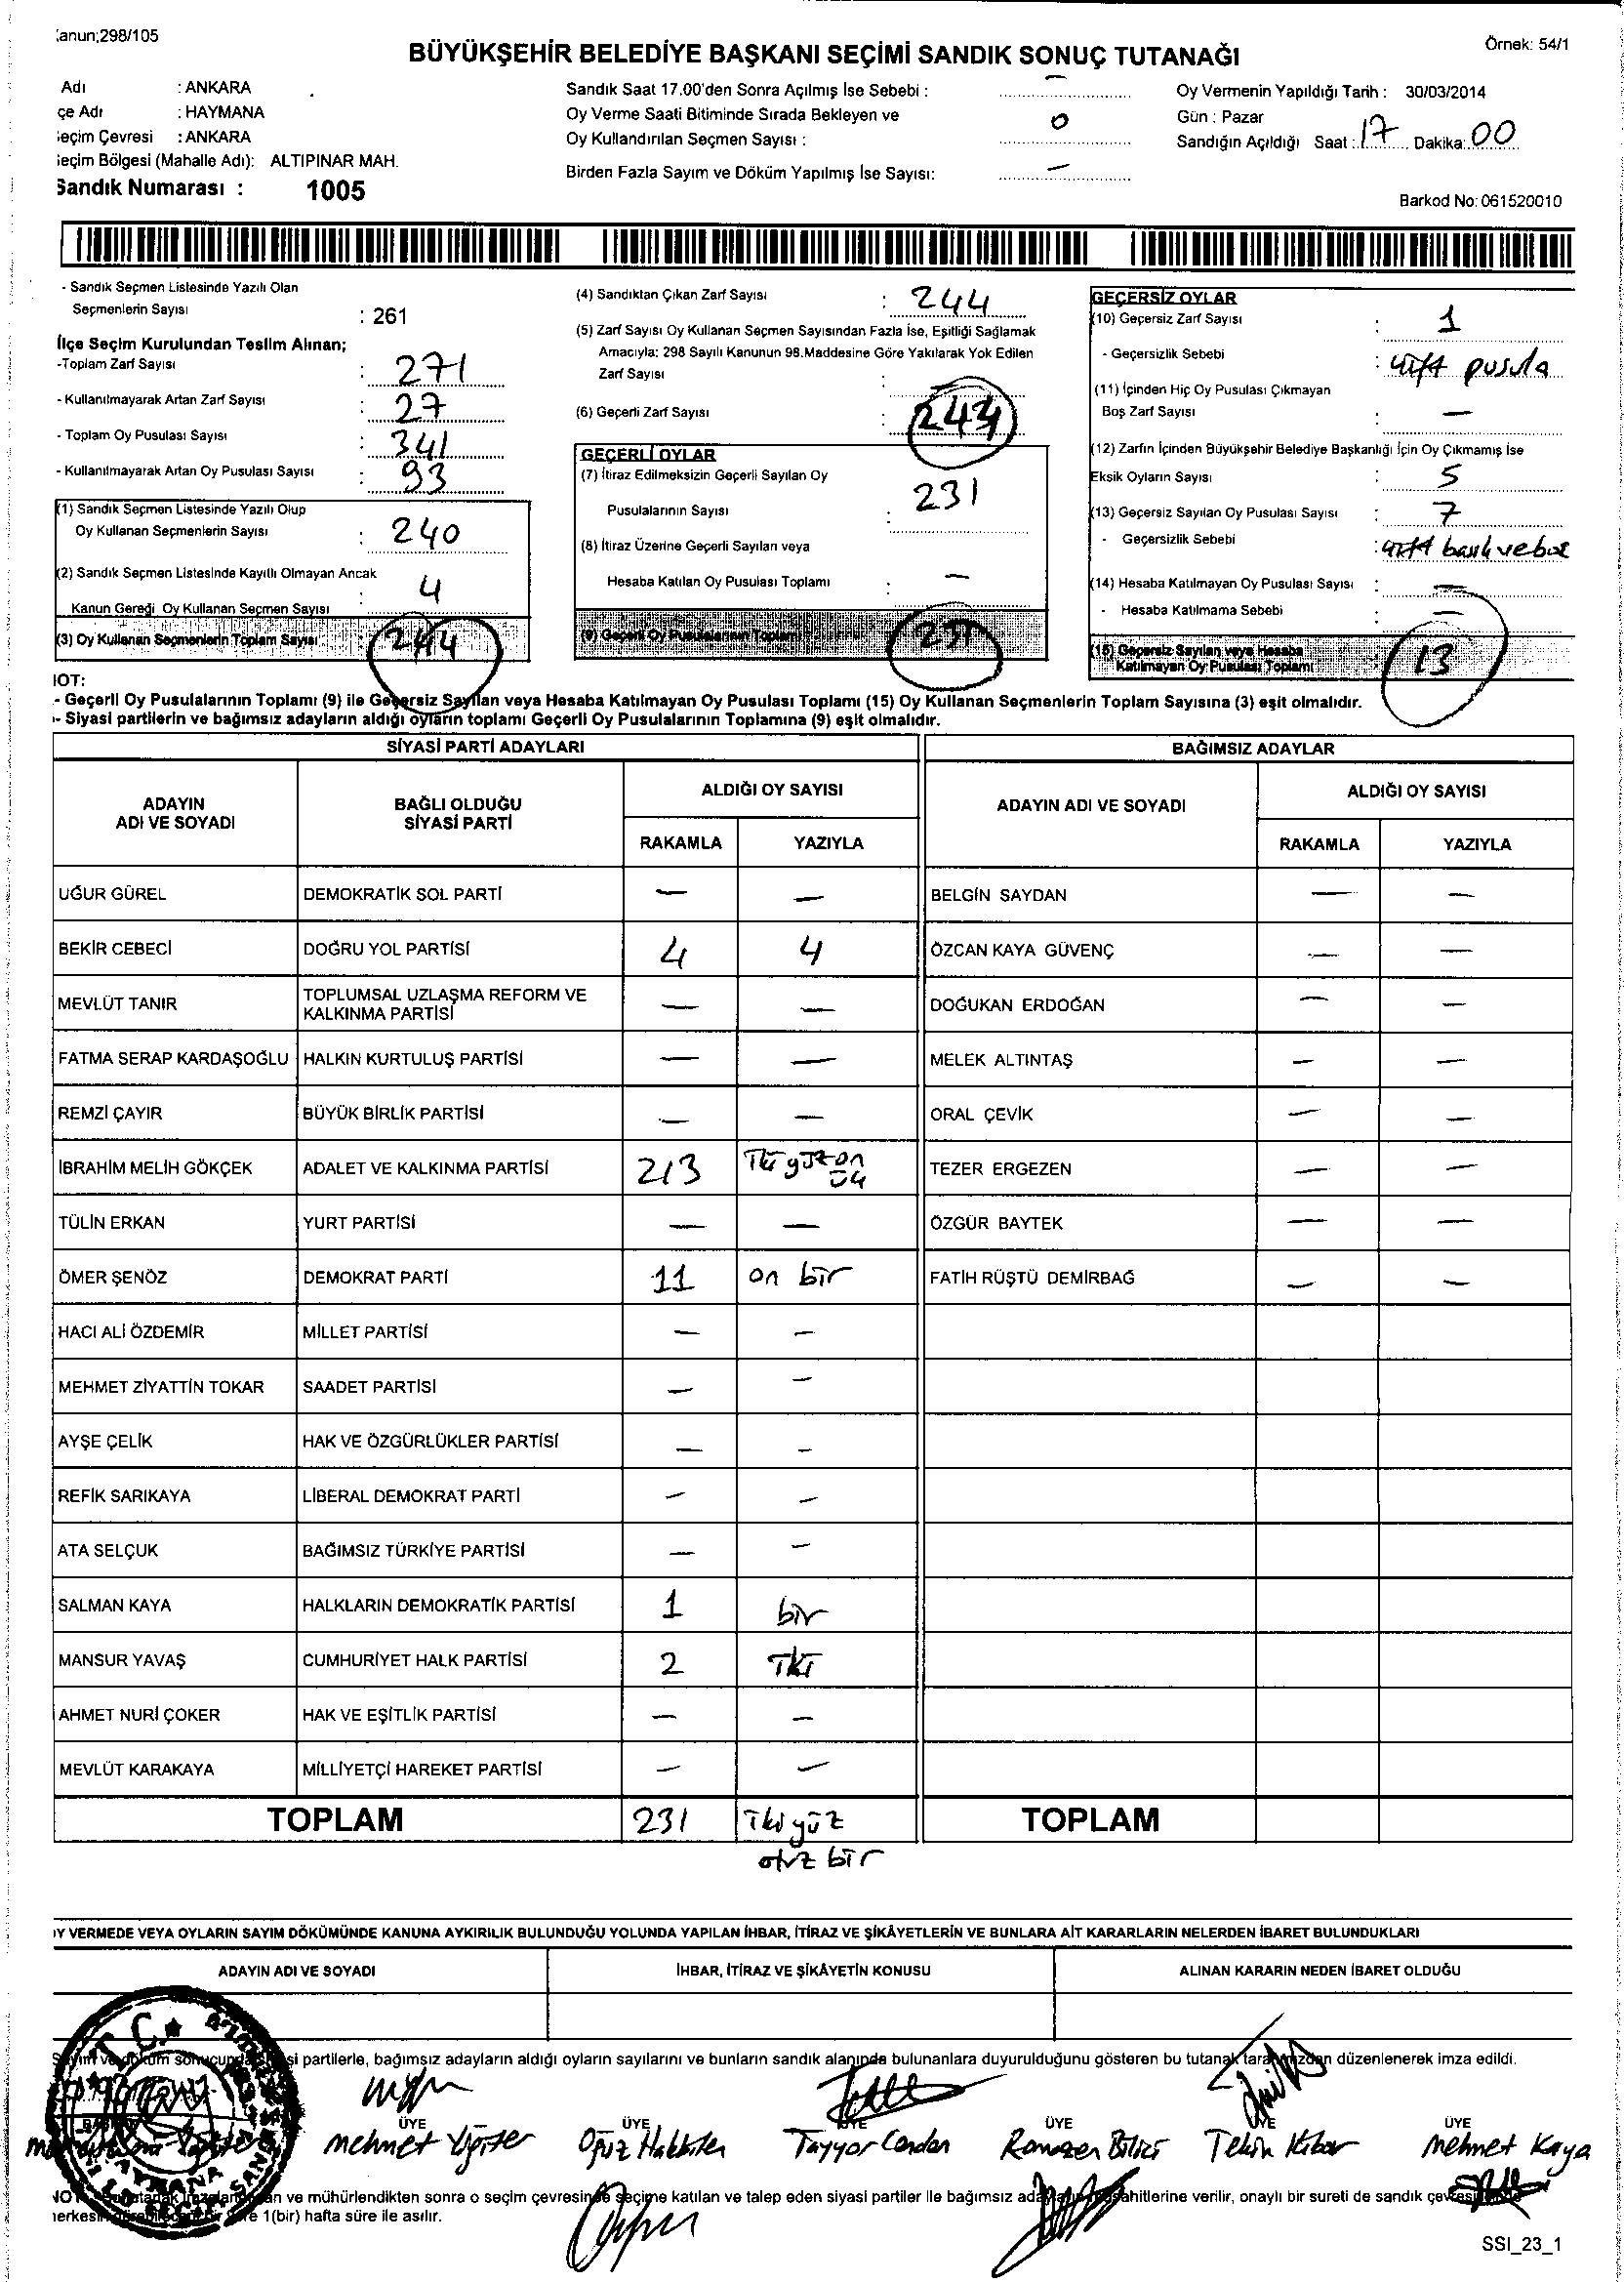 anun;298/105
Örnek: 54/1
BÜYÜKŞEHİR BELEDİYE BAŞKANI SEÇİMİ SANDIK SONUÇ TUTANAĞI
Adı : ANKARA
çe Adı : HAYMANA
eçim Çevresi : ANKARA
eçim Bölgesi (Mahalle Adı): ALTIPINAR MAH.
Sandık Numarası : 1005
Sandık Saat 17.00'den Sonra Açılmış İse Sebebi : —
Oy Verme Saati Bitiminde Sırada Bekleyen ve
Oy Kullandırılan Seçmen Sayısı : 0
Birden Fazla Sayım ve Döküm Yapılmış İse Sayısı: —
Oy Vermenin Yapıldığı Tarih : 30/03/2014
Gün : Pazar
Sandığın Açıldığı Saat : 17 Dakika: 00
Barkod No: 061520010
- Sandık Seçmen Listesinde Yazılı Olan
Seçmenlerin Sayısı : 261
İlçe Seçim Kurulundan Teslim Alınan;
-Toplam Zarf Sayısı : 271
- Kullanılmayarak Artan Zarf Sayısı : 27
- Toplam Oy Pusulası Sayısı : 341
- Kullanılmayarak Artan Oy Pusulası Sayısı : 93
(1) Sandık Seçmen Listesinde Yazılı Olup
Oy Kullanan Seçmenlerin Sayısı : 240
(2) Sandık Seçmen Listesinde Kayıtlı Olmayan Ancak
Kanun Gereği Oy Kullanan Seçmen Sayısı : 4
(3) Oy Kullanan Seçmenlerin Toplam Sayısı : 244
(4) Sandıktan Çıkan Zarf Sayısı : 244
(5) Zarf Sayısı Oy Kullanan Seçmen Sayısından Fazla İse, Eşitliği Sağlamak
Amacıyla; 298 Sayılı Kanunun 98.Maddesine Göre Yakılarak Yok Edilen
Zarf Sayısı :
(6) Geçerli Zarf Sayısı : 243
GEÇERLİ OYLAR
(7) İtiraz Edilmeksizin Geçerli Sayılan Oy
Pusulalarının Sayısı : 231
(8) İtiraz Üzerine Geçerli Sayılan veya
Hesaba Katılan Oy Pusulası Toplamı : —
(9) Geçerli Oy Pusulalarının Toplamı 231
GEÇERSİZ OYLAR
(10) Geçersiz Zarf Sayısı : 1
- Geçersizlik Sebebi : çift pusula
(11) İçinden Hiç Oy Pusulası Çıkmayan
Boş Zarf Sayısı : —
(12) Zarfın İçinden Büyükşehir Belediye Başkanlığı İçin Oy Çıkmamış İse
Eksik Oyların Sayısı : 5
(13) Geçersiz Sayılan Oy Pusulası Sayısı : 7
- Geçersizlik Sebebi : çift baskı ve boş
(14) Hesaba Katılmayan Oy Pusulası Sayısı : —
- Hesaba Katılmama Sebebi : —
(15) Geçersiz Sayılan veya Hesaba
Katılmayan Oy Pusulası Toplamı : 13
NOT:
- Geçerli Oy Pusulalarının Toplamı (9) ile Geçersiz Sayılan veya Hesaba Katılmayan Oy Pusulası Toplamı (15) Oy Kullanan Seçmenlerin Toplam Sayısına (3) eşit olmalıdır.
- Siyasi partilerin ve bağımsız adayların aldığı oyların toplamı Geçerli Oy Pusulalarının Toplamına (9) eşit olmalıdır.
SİYASİ PARTİ ADAYLARI BAĞIMSIZ ADAYLAR
ADAYIN ADI VE SOYADI BAĞLI OLDUĞU SİYASİ PARTİ ALDIĞI OY SAYISI ADAYIN ADI VE SOYADI ALDIĞI OY SAYISI
RAKAMLA YAZIYLA RAKAMLA YAZIYLA
UĞUR GÜREL DEMOKRATİK SOL PARTİ — — BELGİN SAYDAN — —
BEKİR CEBECİ DOĞRU YOL PARTİSİ 4 4 ÖZCAN KAYA GÜVENÇ — —
MEVLÜT TANIR TOPLUMSAL UZLAŞMA REFORM VE KALKINMA PARTİSİ — — DOĞUKAN ERDOĞAN — —
FATMA SERAP KARDAŞOĞLU HALKIN KURTULUŞ PARTİSİ — — MELEK ALTINTAŞ — —
REMZİ ÇAYIR BÜYÜK BİRLİK PARTİSİ — — ORAL ÇEVİK — —
İBRAHİM MELİH GÖKÇEK ADALET VE KALKINMA PARTİSİ 213 İki yüz on üç TEZER ERGEZEN — —
TÜLİN ERKAN YURT PARTİSİ — — ÖZGÜR BAYTEK — —
ÖMER ŞENÖZ DEMOKRAT PARTİ 11 on bir FATİH RÜŞTÜ DEMİRBAĞ — —
HACI ALİ ÖZDEMİR MİLLET PARTİSİ — —
MEHMET ZİYATTİN TOKAR SAADET PARTİSİ — —
AYŞE ÇELİK HAK VE ÖZGÜRLÜKLER PARTİSİ — —
REFİK SARIKAYA LİBERAL DEMOKRAT PARTİ — —
ATA SELÇUK BAĞIMSIZ TÜRKİYE PARTİSİ — —
SALMAN KAYA HALKLARIN DEMOKRATİK PARTİSİ 1 bir
MANSUR YAVAŞ CUMHURİYET HALK PARTİSİ 2 İki
AHMET NURİ ÇOKER HAK VE EŞİTLİK PARTİSİ — —
MEVLÜT KARAKAYA MİLLİYETÇİ HAREKET PARTİSİ — —
TOPLAM 231 İki yüz otuz bir TOPLAM
OY VERMEDE VEYA OYLARIN SAYIM DÖKÜMÜNDE KANUNA AYKIRILIK BULUNDUĞU YOLUNDA YAPILAN İHBAR, İTİRAZ VE ŞİKÂYETLERİN VE BUNLARA AİT KARARLARIN NELERDEN İBARET BULUNDUKLARI
ADAYIN ADI VE SOYADI İHBAR, İTİRAZ VE ŞİKÂYETİN KONUSU ALINAN KARARIN NEDEN İBARET OLDUĞU
Sayım ve döküm sonucunda siyasi partilerle, bağımsız adayların aldığı oyların sayılarını ve bunların sandık alanında bulunanlara duyurulduğunu gösteren bu tutanak tarafımızdan düzenlenerek imza edildi.
ÜYE ÜYE ÜYE ÜYE ÜYE ÜYE
Mehmet Yiğiter Oğuz Tayyar Candan Ramazan Bilici Tekin Mehmet Kaya
T.C.
HAYMANA
an ve mühürlendikten sonra o seçim çevresinde seçime katılan ve talep eden siyasi partiler ile bağımsız aday müşahitlerine verilir, onaylı bir sureti de sandık çevresinde
1(bir) hafta süre ile asılır.
SSI_23_1